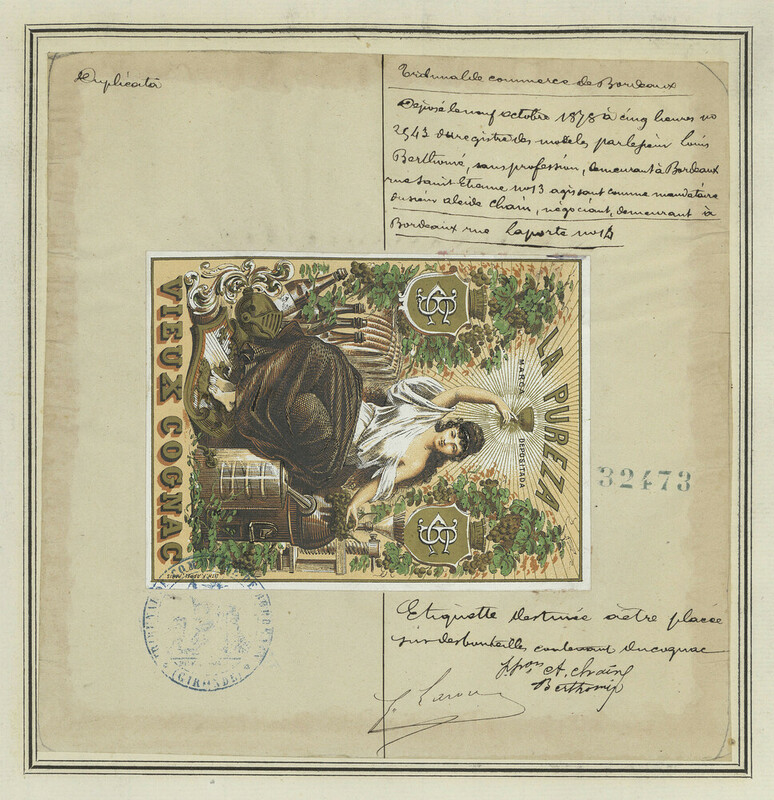 Duplicata
Tribunal de commerce de Bordeaux
Déposé le neuf octobre 1878 à cinq heures no
2543 du registre des modèles par le sieur Louis
Berthomé, sans profession, demeurant à Bordeaux
rue Saint Etienne no 13 agissant comme mandataire
du sieur Alcide Chain, négociant, demeurant à
Bordeaux rue Laporte no
LA PUREZA
MARCA DEPOSITADA
VIEUX COGNAC
32473
TRIBUNAL DE COMMERCE DE BORDEAUX
(GIRONDE)
Etiquette destinée à être placée
sur des bouteilles contenant du cognac
ppon A. Chain
Berthomé